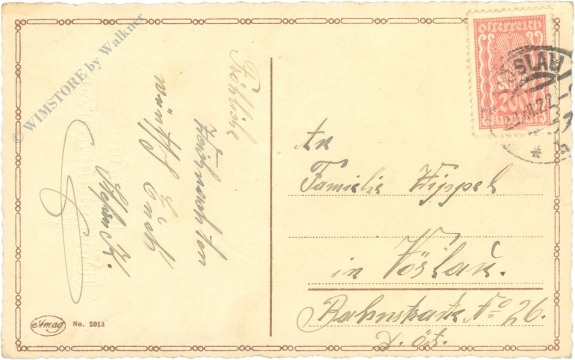 © WIMSTORE by Walkner
Fröhliche
Weihnachten
wünscht
Euch
Stefan K.
Amag
No. 2013
österreich
2000
Kronen
An
Familie Wippel
in Vöslau.
Bahnstraße No 26.